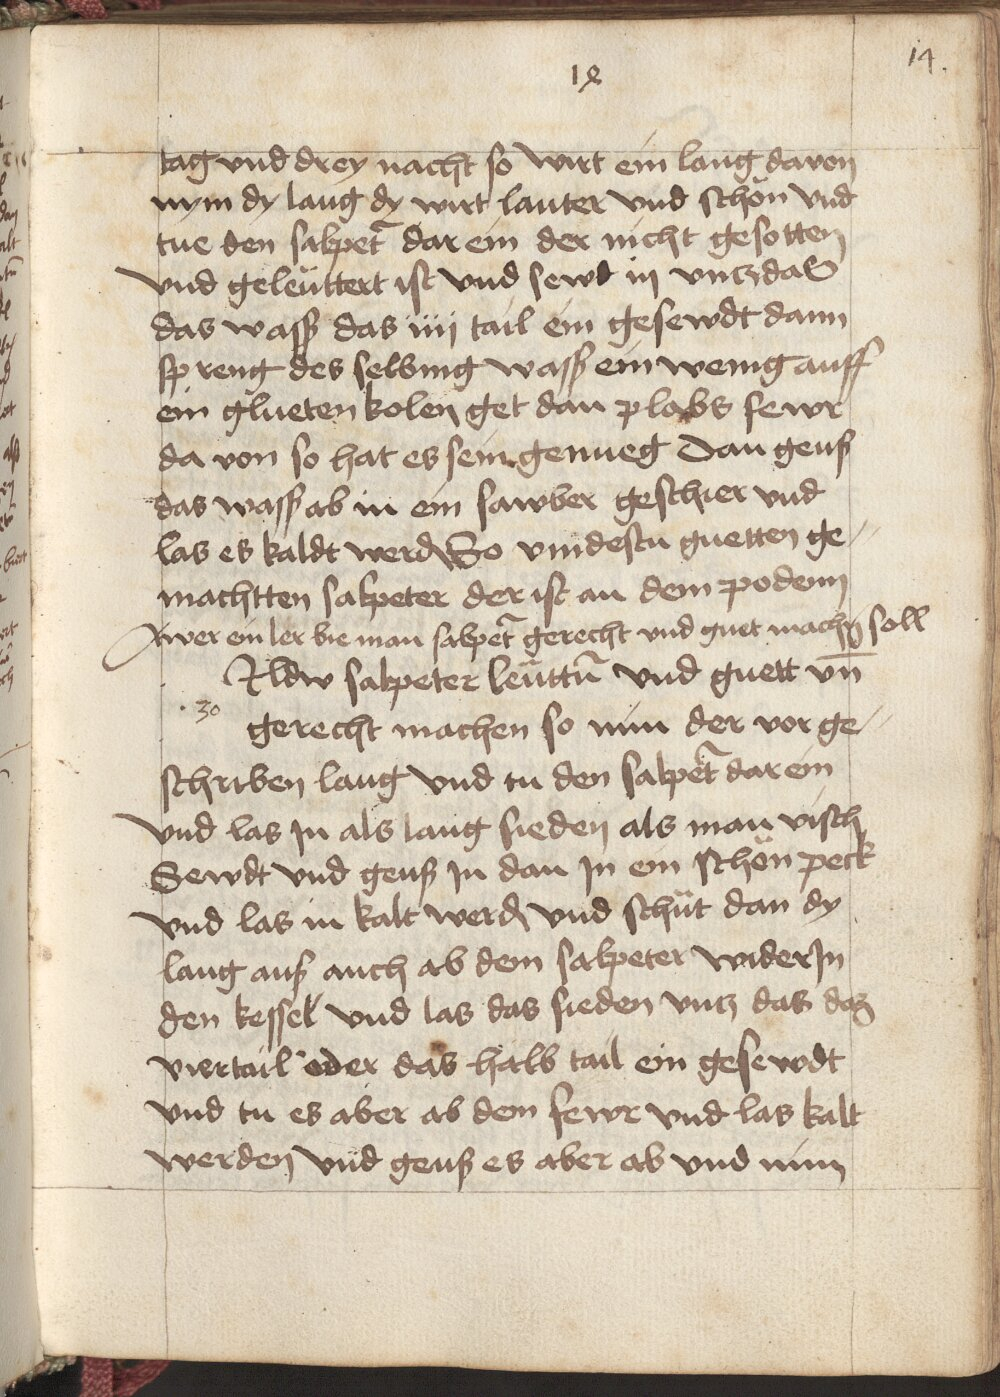 14
14.
tag vnd drey nacht so wirt ein laug davon
nym dy laug dy wirt lauter vnd schön vnd
tue den salpet̃ dar ein der nicht gesotten
vnd geleüttert ist vnd sewd in vntz das
das wasß das iiij tail ein gesewdt dann
spreng des selbing wasß ein wenig auff
ein glueten kolen get dan plabs fewr
da von so hat es sein genueg Dan geuß
das wasß ab in ein sawber geschier vnd
las es kaldt werdñ So vindestu guetten ge⸗
machtten salpeter der ist an dem podenn
Awer ein ler wie man salpet̃ gerecht vnd guet machñ soll
Wildw salpeter leüttñ vnd guett vn̄
30
gerecht machen so nim der vor ge⸗
schriben laug vnd tu den salpet̃ dar ein
vnd las In als lang sieden als man visch
Sewdt vnd geuß In dan In ein schön peck
vnd las in kalt werdñ vnd schüt dan dy
laug auß auch ab dem salpeter wider In
den kessel vnd las das sieden vntz das daz
viertail oder das halb tail ein gesewdt
vnd tu es aber ab dem fewr vnd las kalt
werden vnd geuß es aber ab vnd nim